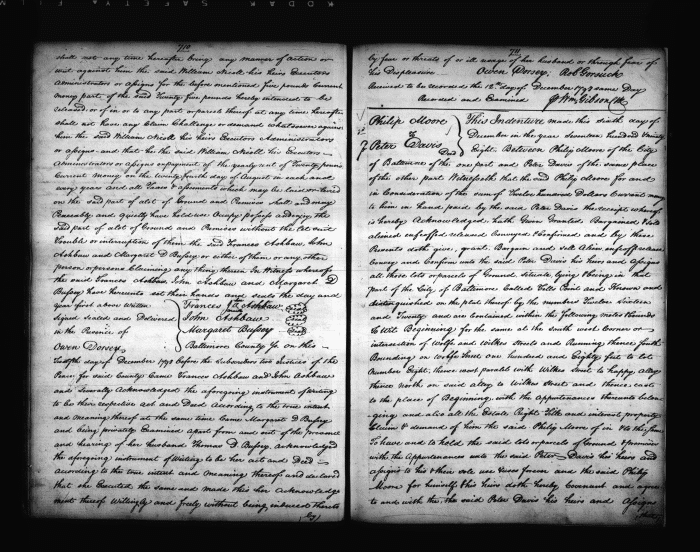 KODAK SAFETY FILM
710
shall not any time hereafter bring any manner of Action or
suit against him the said William Nicoll his heirs Executors
Administrators or Assigns for the before mentioned five pounds Current
money part of the said Twenty five pounds hereby intended to be
released or of in or to any part or parcels thereof at any time hereafter
shall nor have any Claim Challenge or demand whatsoever against
him the said William Nicoll his heirs Executors Administrators
or Assigns and that he the said William Nicoll his Executors
Administrators or Assigns payment of the yearly rent of Twenty pounds
Current money on the twenty fourth day of August in each and
every year and all Taxes & assessments which may be laid or levied
on the said part of a lot of Ground and Premises shall and may
Peaceably and quietly have hold use Occupy possess and enjoy the
said part of a lot of Ground and Premises without the let suit
Trouble or interruption of them the said Frances Ashbaw, John
Ashbaw and Margaret D Bussey or either of them or any other
person or persons claiming any thing therein In Witness whereof
the said Frances Ashbaw, John Ashbaw and Margaret D
Bussey have hereunto set their hands and seals the day and
year first above written Frances Ashbaw
signed sealed and Delivered John Ashbaw
in the Presence of Margaret Bussey
Owen Dorsey Baltimore County Js. on this
Twelfth day of December 1798 before the Subscribers two Justices of the
Peace for said County Came Frances Ashbaw and John Ashbaw
and severally Acknowledged the aforegoing instrument of writing
to be their respective act and Deed According to the true intent
and meaning thereof at the same time Came Margaret D Bussey
and being privately Examined apart from and out of the presence
and hearing of her husband Thomas D Bussey, acknowledged
the aforegoing instrument of Writing to be her act and Deed
According to the true intent and meaning thereof and declared
that she Executed the same and made this her Acknowledg
ment thereof Willingly and freely without being induced thereto
(by)
711
by fear or threats of or ill usage of her husband or through fear of
his Displeasure Owen Dorsey, Rob Gorsuch
Received to be recorded the 12th day of December 1798 same Day
Recorded and Examined Wm Gibson Clk
Philip Moore
to
Peter Davis
Deed
This Indenture made this sixth day of
December in the year seventeen hundred Ninety
Eight. Between Philip Moore of the City
of Baltimore of the one part and Peter Davis of the same place
of the other part Witnesseth that the said Philip Moore for and
in Consideration of the sum of Twelve hundred Dollars Current money
to him in hand paid by the said Peter Davis the receipt whereof
is hereby Acknowledged hath Given Granted Bargained & sold
aliened enfeoffed released Conveyed & Confirmed and by these
Presents doth give, grant, Bargain and sell Alien enfeoff release
Convey and Confirm unto the said Peter Davis his heirs and assigns
all those lots or parcels of Ground situate lying & being in that
part of the City of Baltimore Called Fells Point and Known and
distinguished on the plat thereof by the numbers Twelve Nineteen
and Twenty and are contained within the following metes & bounds
to Wit Beginning for the same at the south west corner or
intersection of Wolfe and Wilkes Street and Running thence south
Bounding on Wolfe Street one hundred and Eighty feet to lot
number Eight, thence west parallel with Wilkes Street to happy alley
thence north on said alley to Wilkes Street and thence east
to the place of Beginning, with the appurtenances thereunto belon
ging and also all the Estate Right Title and interest, property
claim & demand of him the said Philip Moore of in & to the same
To have and to hold the said lots or parcels of Ground & premises
with the Appurtenances unto the said Peter Davis his heirs and
assigns to his & their sole use & uses forever and the said Philip
Moore for himself & his heirs doth hereby Covenant and agree
to and with the, the said Peter Davis his heirs and Assigns